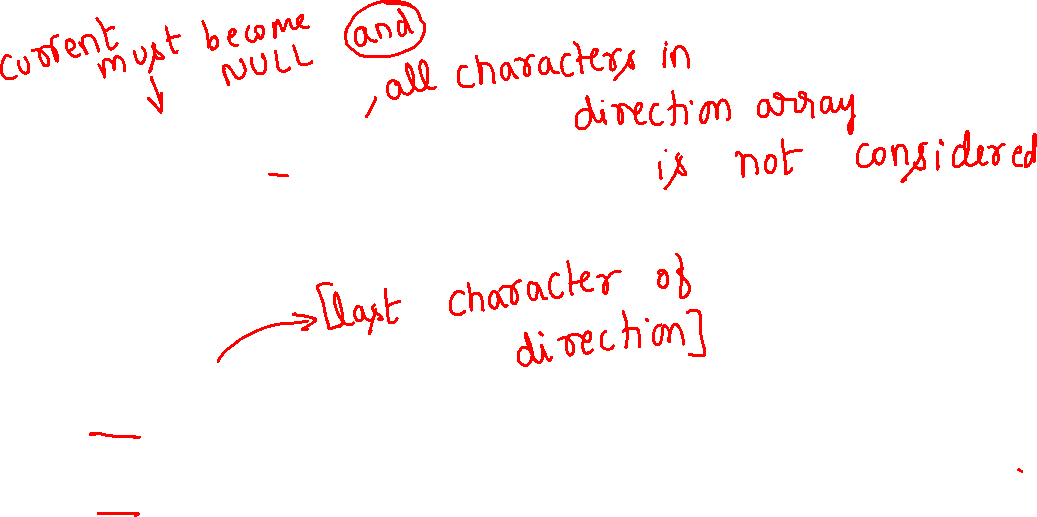 current must become NULL (and)
, all characters in
direction array
is not considered
[last character of
direction]